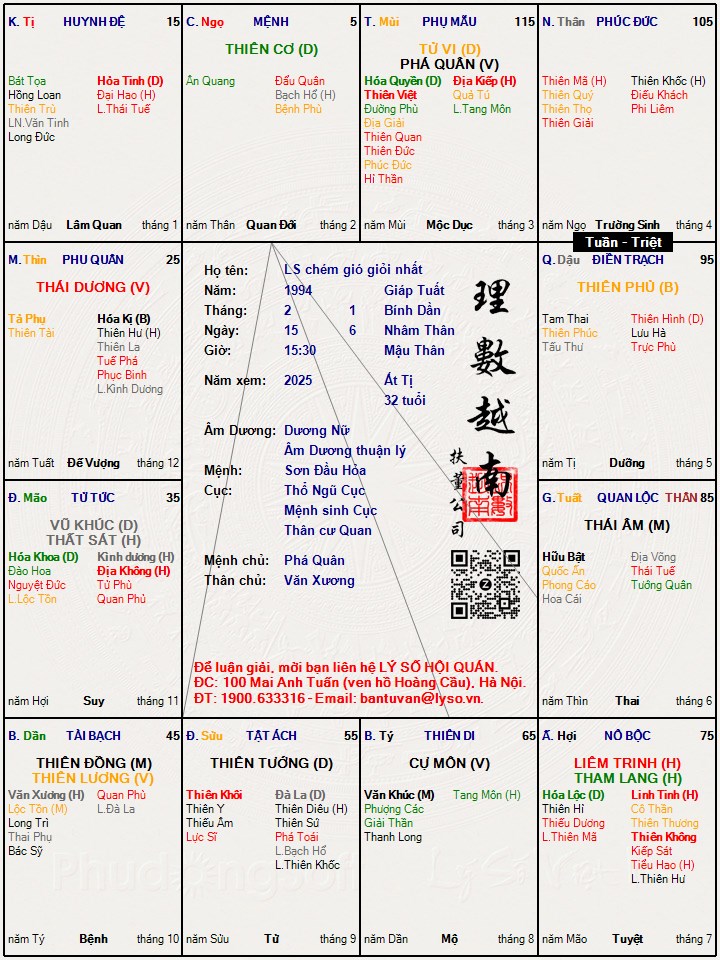 K. Tị HUYNH ĐỆ 15
Hỏa Tinh (D)
Bát Tọa
Đại Hao (H)
Hồng Loan
L.Thái Tuế
Thiên Trù
LN.Văn Tinh
Long Đức
năm Dậu Lâm Quan tháng 1
C. Ngọ MỆNH 5
THIÊN CƠ (D)
Ân Quang
Đẩu Quân
Bạch Hổ (H)
Bệnh Phù
năm Thân Quan Đới tháng 2
T. Mùi PHỤ MẪU 115
TỬ VI (D)
PHÁ QUÂN (V)
Hóa Quyền (D)
Thiên Việt
Đường Phù
Địa Giải
Thiên Quan
Thiên Đức
Phúc Đức
Hỉ Thần
Địa Kiếp (H)
Quả Tú
L.Tang Môn
năm Mùi Mộc Dục tháng 3
N. Thân PHÚC ĐỨC 105
Thiên Mã (H)
Thiên Quý
Thiên Thọ
Thiên Giải
Thiên Khốc (H)
Điếu Khách
Phi Liêm
năm Ngọ Trường Sinh tháng 4
Tuần - Triệt
M. Thìn PHU QUÂN 25
THÁI DƯƠNG (V)
Tả Phụ
Thiên Tài
Hóa Kị (B)
Thiên Hư (H)
Thiên La
Tuế Phá
Phục Binh
L.Kình Dương
năm Tuất Đế Vượng tháng 12
Họ tên: LS chém gió giỏi nhất
Năm: 1994 Giáp Tuất
Tháng: 2 1 Bính Dần
Ngày: 15 6 Nhâm Thân
Giờ: 15:30 Mậu Thân
Năm xem: 2025 Ất Tị
32 tuổi
Âm Dương: Dương Nữ
Âm Dương thuận lý
Mệnh: Sơn Đầu Hỏa
Cục: Thổ Ngũ Cục
Mệnh sinh Cục
Thân cư Quan
Mệnh chủ: Phá Quân
Thân chủ: Văn Xương
理數越南
扶董公司
Để luận giải, mời bạn liên hệ LÝ SỐ HỘI QUÁN.
ĐC: 100 Mai Anh Tuấn (ven hồ Hoàng Cầu), Hà Nội.
ĐT: 1900.633316 - Email: bantuvan@lyso.vn.
Q. Dậu ĐIỀN TRẠCH 95
THIÊN PHỦ (B)
Tam Thai
Thiên Phúc
Tấu Thư
Thiên Hình (D)
Lưu Hà
Trực Phù
năm Tị Dưỡng tháng 5
Đ. Mão TỬ TỨC 35
VŨ KHÚC (D)
THẤT SÁT (H)
Hóa Khoa (D)
Đào Hoa
Nguyệt Đức
L.Lộc Tồn
Kình dương (H)
Địa Không (H)
Tử Phù
Quan Phủ
năm Hợi Suy tháng 11
G. Tuất QUAN LỘC THÂN 85
THÁI ÂM (M)
Hữu Bật
Quốc Ấn
Phong Cáo
Hoa Cái
Địa Võng
Thái Tuế
Tướng Quân
năm Thìn Thai tháng 6
B. Dần TÀI BẠCH 45
THIÊN ĐỒNG (M)
THIÊN LƯƠNG (V)
Văn Xương (H)
Lộc Tồn (M)
Long Trì
Thai Phụ
Bác Sỹ
Quan Phù
L.Đà La
năm Tý Bệnh tháng 10
Đ. Sửu TẬT ÁCH 55
THIÊN TƯỚNG (D)
Thiên Khôi
Thiên Y
Thiếu Âm
Lực Sĩ
Đà La (D)
Thiên Diêu (H)
Thiên Sứ
Phá Toái
L.Bạch Hổ
L.Thiên Khốc
năm Sửu Tử tháng 9
B. Tý THIÊN DI 65
CỰ MÔN (V)
Văn Khúc (M)
Phượng Các
Giải Thần
Thanh Long
Tang Môn (H)
năm Dần Mộ tháng 8
Ấ. Hợi NÔ BỘC 75
LIÊM TRINH (H)
THAM LANG (H)
Hóa Lộc (D)
Thiên Hỉ
Thiếu Dương
L.Thiên Mã
Linh Tinh (H)
Cô Thần
Thiên Thương
Thiên Không
Kiếp Sát
Tiểu Hao (H)
L.Thiên Hư
năm Mão Tuyệt tháng 7